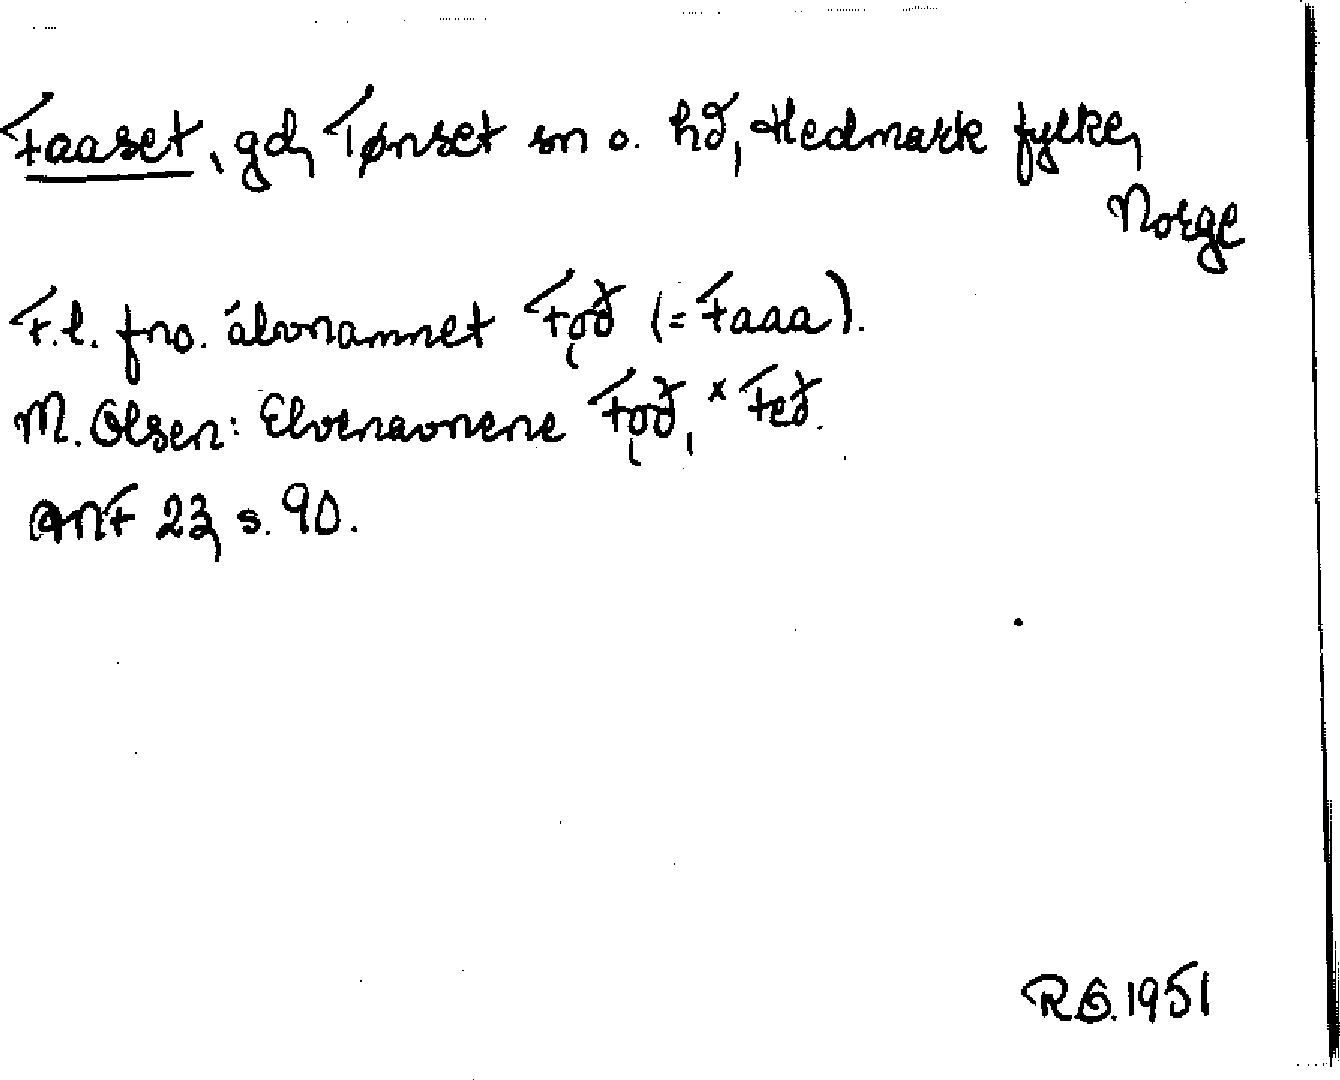 Faaset, gd, Tønset sn o. hd, Hedmark fylke,
Norge
F.l. fno. älvnamnet Fǫð (= Faaa).
M. Olsen: Elvenavnene Fǫð, ˣFeð.
ANF 23, s. 90.
RG. 1951